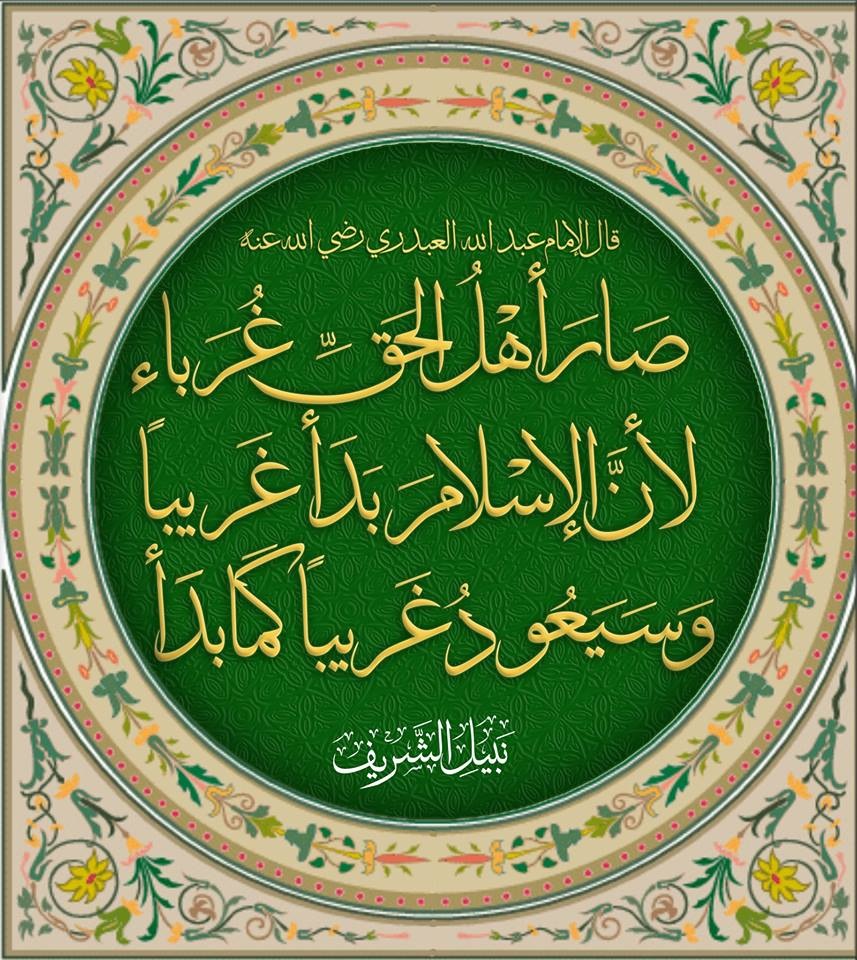 قال الإمام عبد الله العبدري رضي الله عنه
صَارَ أَهْلُ الحَقِّ غُرَباء
لأنَّ الإسْلامَ بَدَأ غَرِيباً
وَسَيَعُودُ غَرِيباً كَمَا بَدَأ
نَبِيل الشَّرِيف